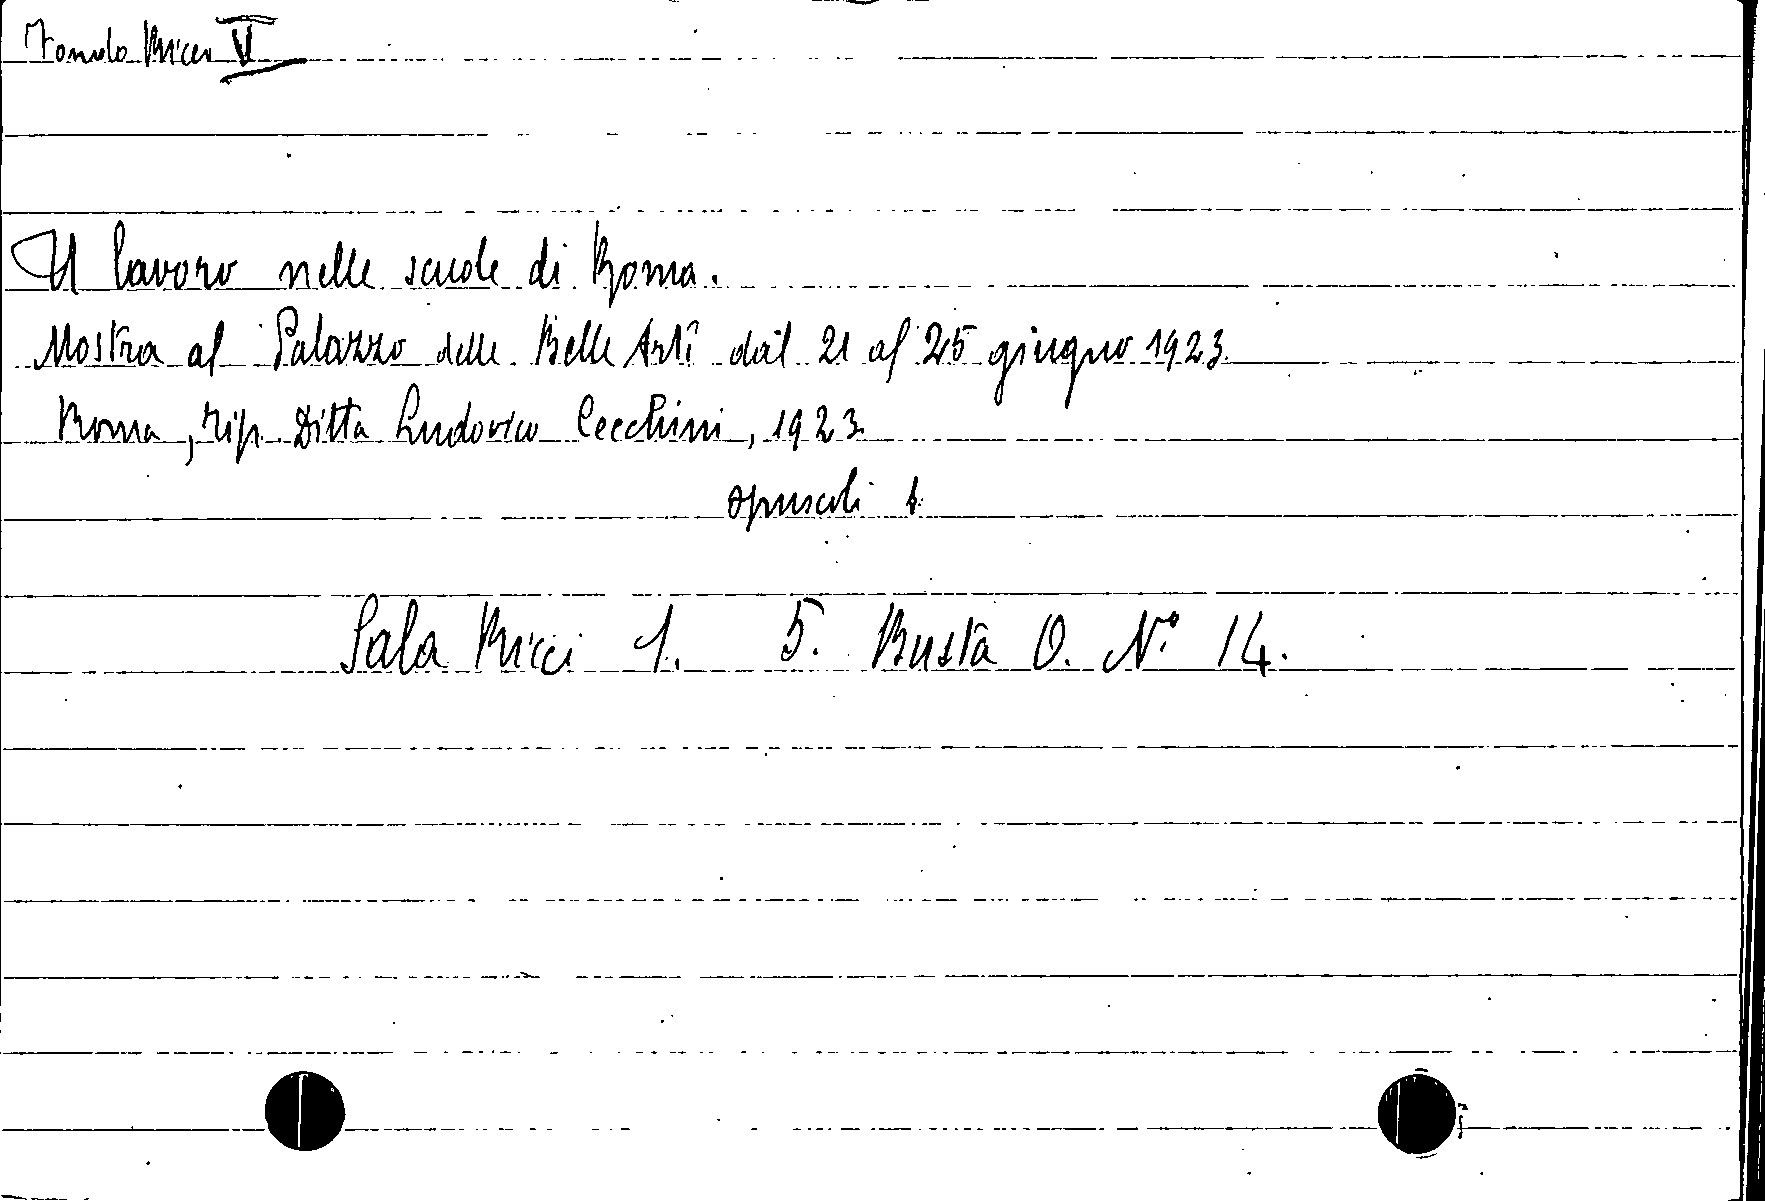 Fondo Ricci V
Il lavoro nelle scuole di Roma.
Mostra al Palazzo delle Belle Arti dal 21 al 25 giugno 1923.
Roma, tip. Ditta Ludovico Cecchini, 1923.
opuscoli 1.
Sala Ricci 1. 5. Busta O. N.° 14.